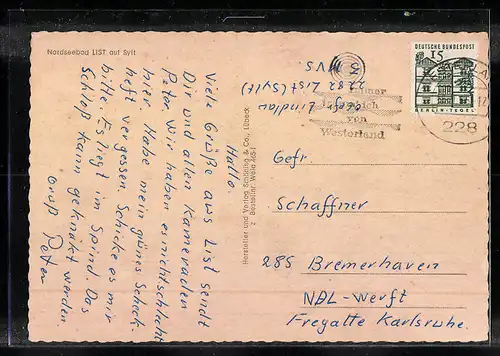 Nordseebad LIST auf Sylt
Hallo.
Viele Grüße aus List sendt
Dir und allen Kameraden
Peter. Wir haben es nicht schlecht
hier. Habe mein günes Schick.
heft vergessen. Schicke es mir
bitte. Es liegt im Spind. Das
Schloß kann geknakt werden
Gruß Peter
Hersteller und Verlag Schöning & Co., Lübeck
Bestellnr.
Gefr. Lindau
2282 List (Sylt)
3 MVS
DEUTSCHE BUNDESPOST
15
BERLIN-TEGEL
von
Westerland
228
Gefr.
Schaffner
285 Bremerhaven
NDL-Werft
Fregatte Karlsruhe.